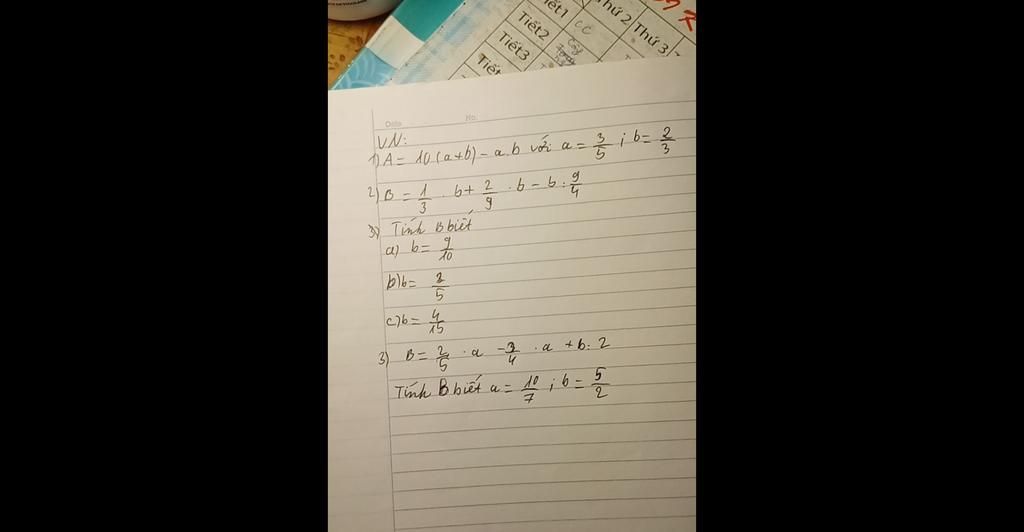 Tiết1
Thứ 2
Thứ 3
Tiết2
CC
Tiết3
Tiết
Date
No.
VN:
1) A = 10(a+b) - a.b với a = 3/5 ; b = 2/3
2) B = 1/3 . b + 2/9 . b - b : 9/4
3) Tính B biết
a) b = 9/10
b) b = 2/5
c) b = 4/15
3) B = 2/5 . a - 3/4 . a + b : 2
Tính B biết a = 10/7 ; b = 5/2